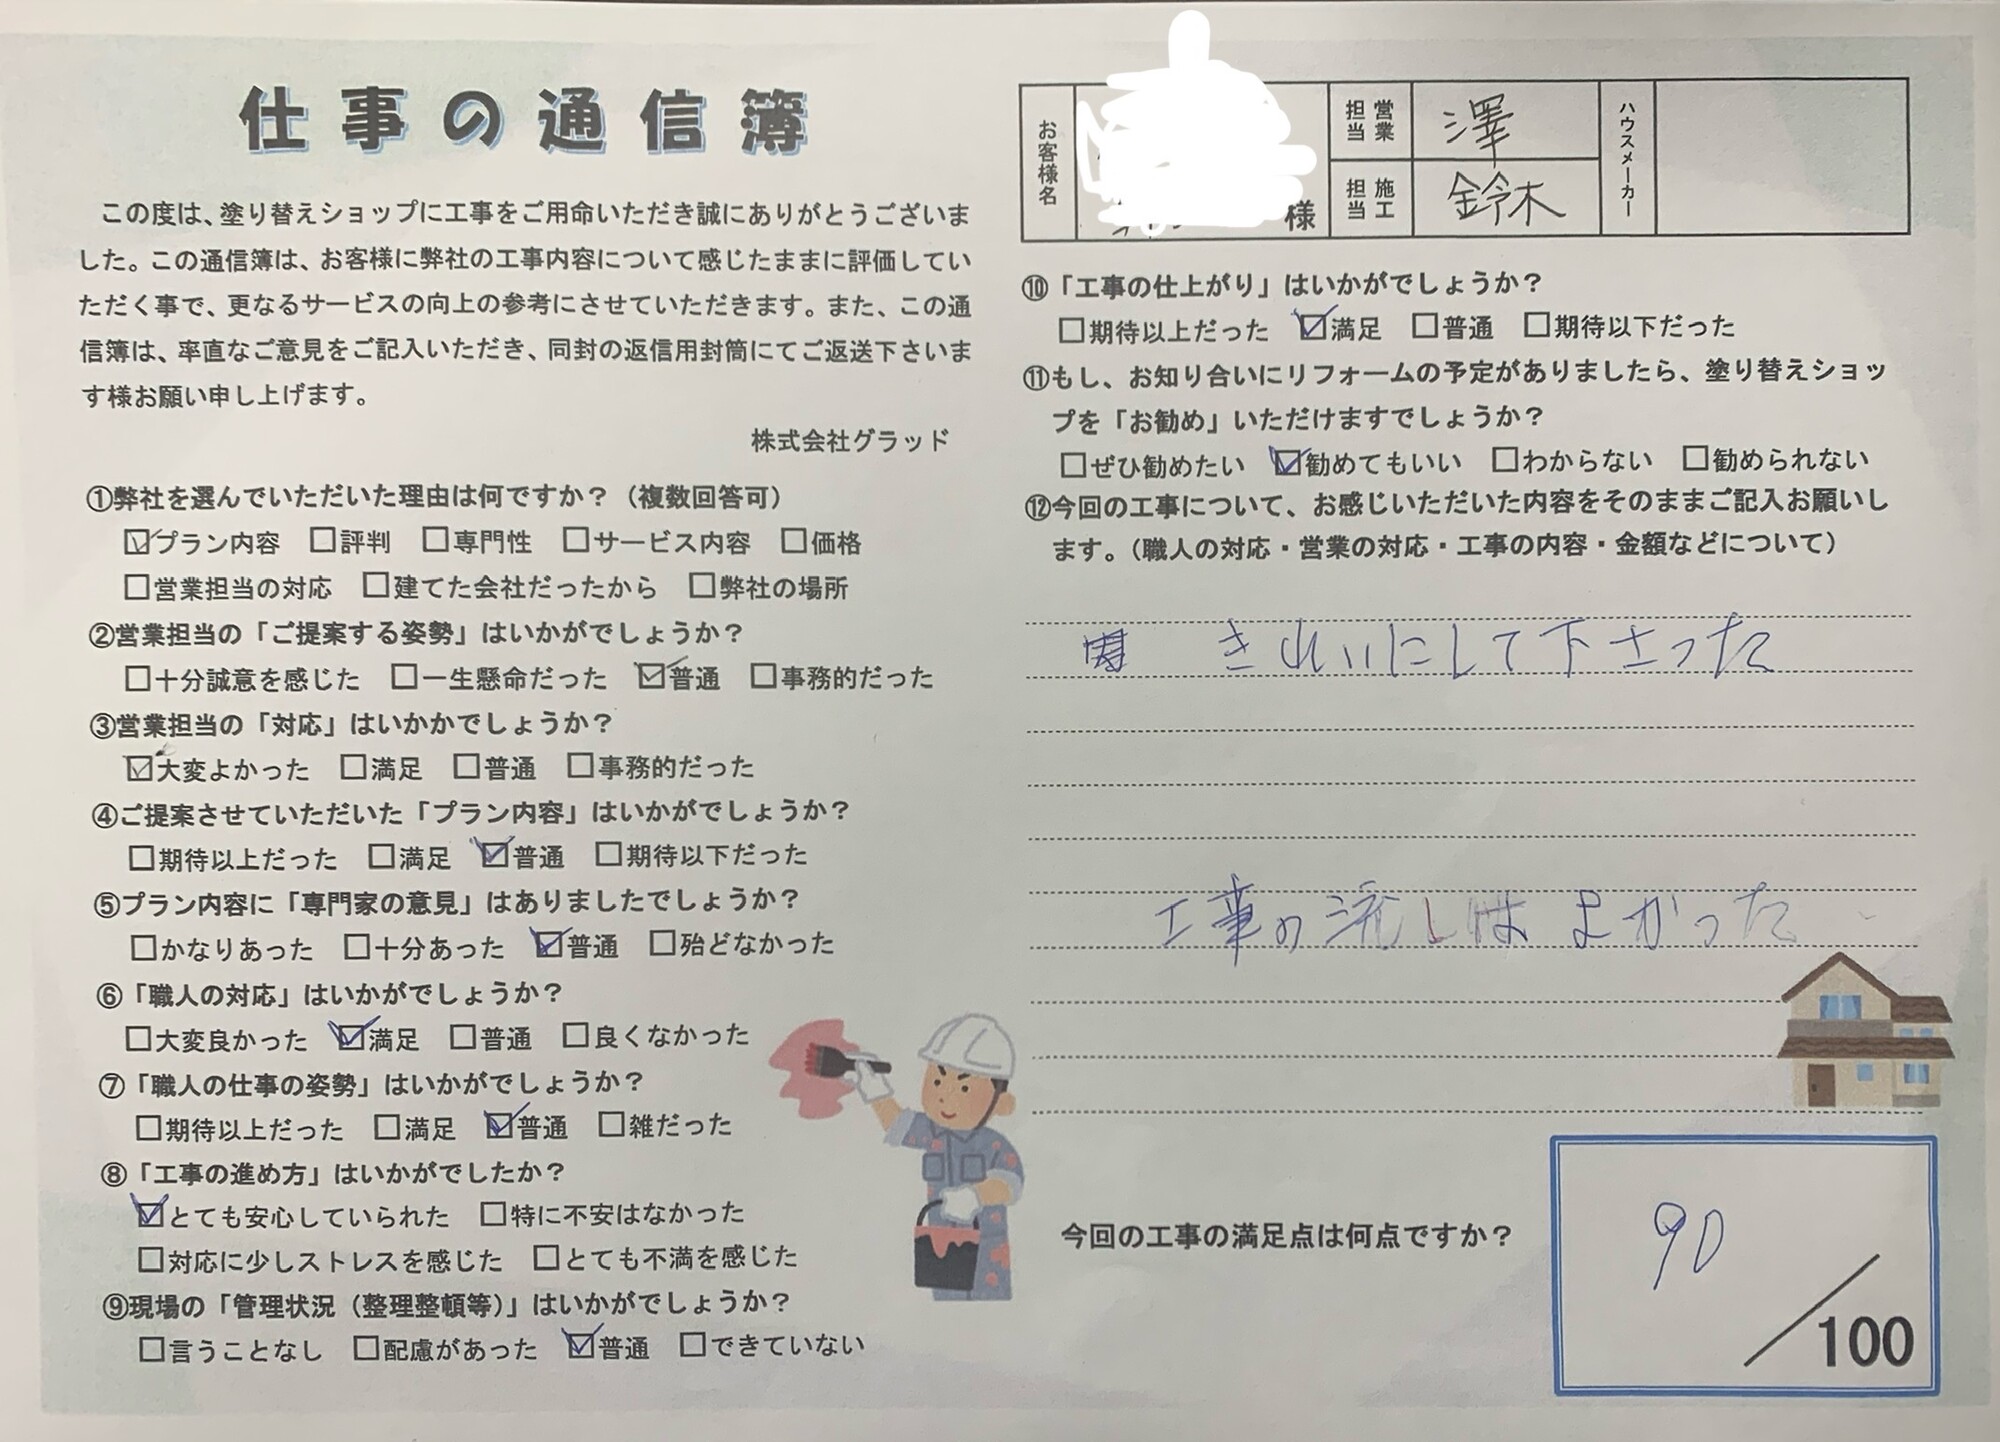 仕事の通信簿
この度は、塗り替えショップに工事をご用命いただき誠にありがとうございま
した。この通信簿は、お客様に弊社の工事内容について感じたままに評価してい
ただく事で、更なるサービスの向上の参考にさせていただきます。また、この通
信簿は、率直なご意見をご記入いただき、同封の返信用封筒にてご返送下さいま
す様お願い申し上げます。
株式会社グラッド
①弊社を選んでいただいた理由は何ですか？（複数回答可）
☑プラン内容 □評判 □専門性 □サービス内容 □価格
□営業担当の対応 □建てた会社だったから □弊社の場所
②営業担当の「ご提案する姿勢」はいかがでしょうか？
□十分誠意を感じた □一生懸命だった ☑普通 □事務的だった
③営業担当の「対応」はいかかでしょうか？
☑大変よかった □満足 □普通 □事務的だった
④ご提案させていただいた「プラン内容」はいかがでしょうか？
□期待以上だった □満足 ☑普通 □期待以下だった
⑤プラン内容に「専門家の意見」はありましたでしょうか？
□かなりあった □十分あった ☑普通 □殆どなかった
⑥「職人の対応」はいかがでしょうか？
□大変良かった ☑満足 □普通 □良くなかった
⑦「職人の仕事の姿勢」はいかがでしょうか？
□期待以上だった □満足 ☑普通 □雑だった
⑧「工事の進め方」はいかがでしたか？
☑とても安心していられた □特に不安はなかった
□対応に少しストレスを感じた □とても不満を感じた
⑨現場の「管理状況（整理整頓等）」はいかがでしょうか？
□言うことなし □配慮があった ☑普通 □できていない
お客様名 様 営業担当 澤 ハウスメーカー
施工担当 鈴木
⑩「工事の仕上がり」はいかがでしょうか？
□期待以上だった ☑満足 □普通 □期待以下だった
⑪もし、お知り合いにリフォームの予定がありましたら、塗り替えショッ
プを「お勧め」いただけますでしょうか？
□ぜひ勧めたい ☑勧めてもいい □わからない □勧められない
⑫今回の工事について、お感じいただいた内容をそのままご記入お願いし
ます。（職人の対応・営業の対応・工事の内容・金額などについて）
きれいにして下さった
工事の流しは よかった
今回の工事の満足点は何点ですか？
90
／100